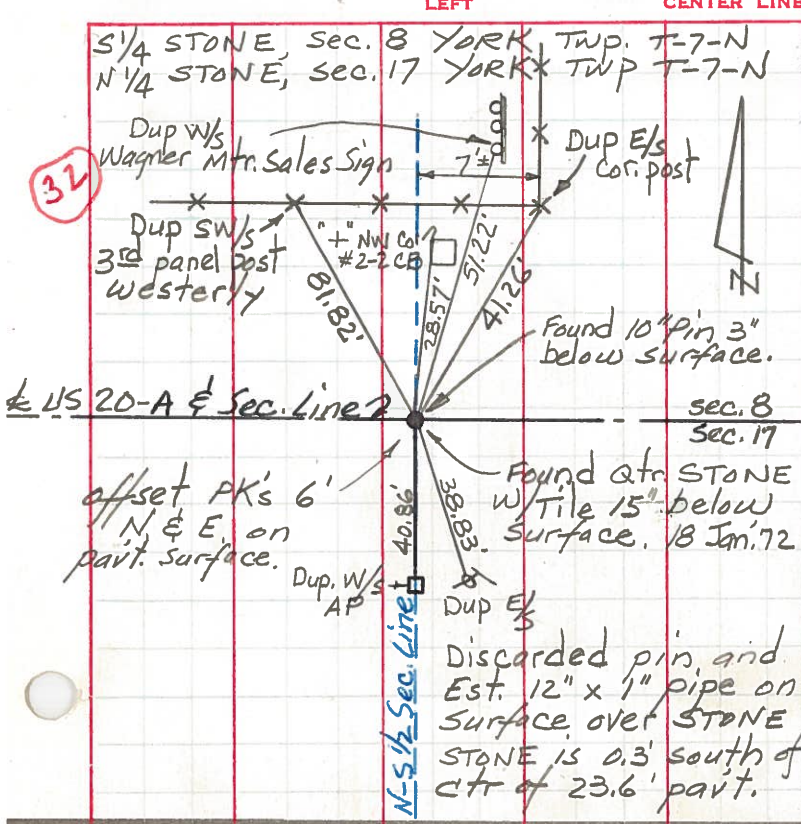 LEFT
CENTER LINE
S1/4 STONE, Sec. 8 YORK, TWP. T-7-N
N1/4 STONE, Sec. 17 YORK TWP T-7-N
32
Dup W/s
Wagner Mtr. Sales Sign
7'±
Dup E/s
Cor. post
Dup SW/s
3rd panel post
westerly
"+" NW Co
#2-2 CB
81.82'
28.57'
51.22'
41.26'
N
Found 10" Pin 3"
below surface.
℄ US 20-A & Sec. Line
Sec. 8
Sec. 17
offset PK's 6'
N & E, on
pav't. surface.
Found Qtr. STONE
W/Tile 15" below
Surface. 18 Jan. '72
40.86'
38.83'
Dup. W/s
AP
Dup E/s
N-S 1/2 Sec. Line
Discarded pin, and
Est. 12" x 1" pipe on
Surface over STONE
STONE is 0.3' south of
ctr of 23.6' pav't.